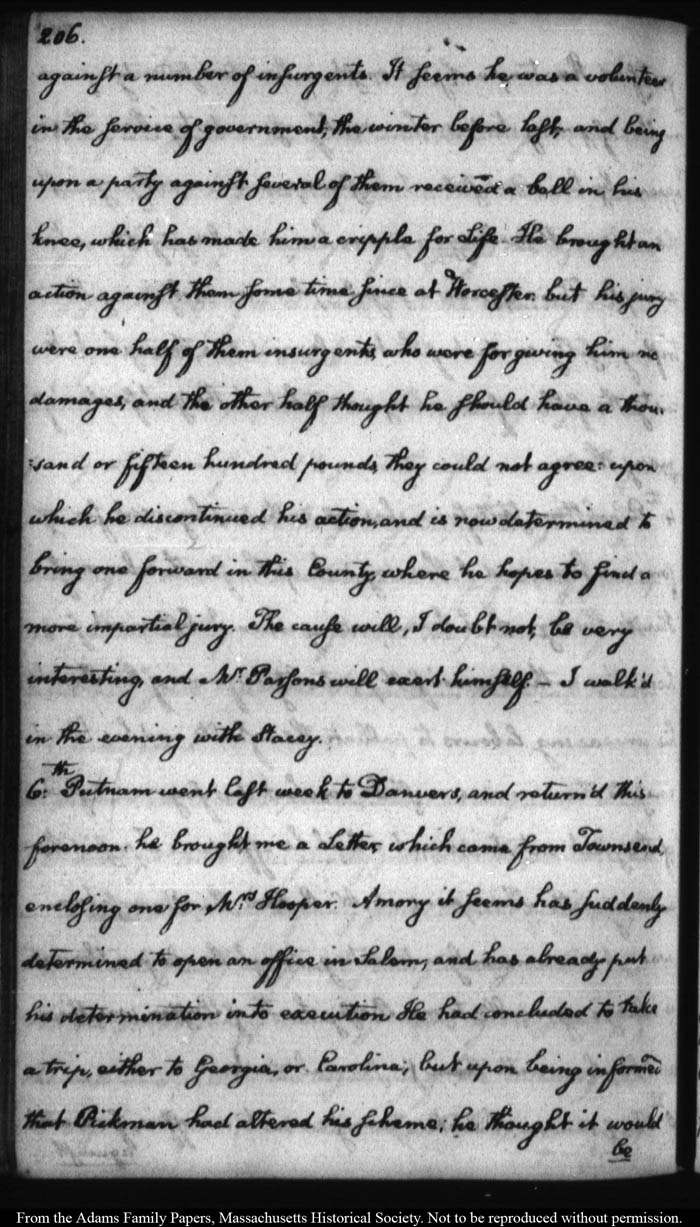 206.
against a number of insurgents. It seems he was a volunteer
in the service of government, the winter before last, and being
upon a party against several of them received a ball in his
knee, which has made him a cripple for Life. He brought an
action against them some time since at Worcester, but his jury
were one half of them insurgents, who were for giving him no
damages, and the other half thought he should have a thou-
:sand or fifteen hundred pounds, they could not agree: upon
which he discontinued his action, and is now determined to
bring one forward in this County, where he hopes to find a
more impartial jury. The cause will, I doubt not, be very
interesting, and Mr. Parsons will exert himself. — I walk'd
in the evening with Stacey.
6.th Putnam went last week to Danvers, and return'd this
forenoon. he brought me a Letter, which came from Townsend,
enclosing one for Mrs. Hooper. Amory it seems has suddenly
determined to open an office in Salem, and has already put
his determination into execution He had concluded to take
a trip, either to Georgia, or Carolina; but upon being informed
that Pickman had altered his scheme; he thought it would
be
From the Adams Family Papers, Massachusetts Historical Society. Not to be reproduced without permission.